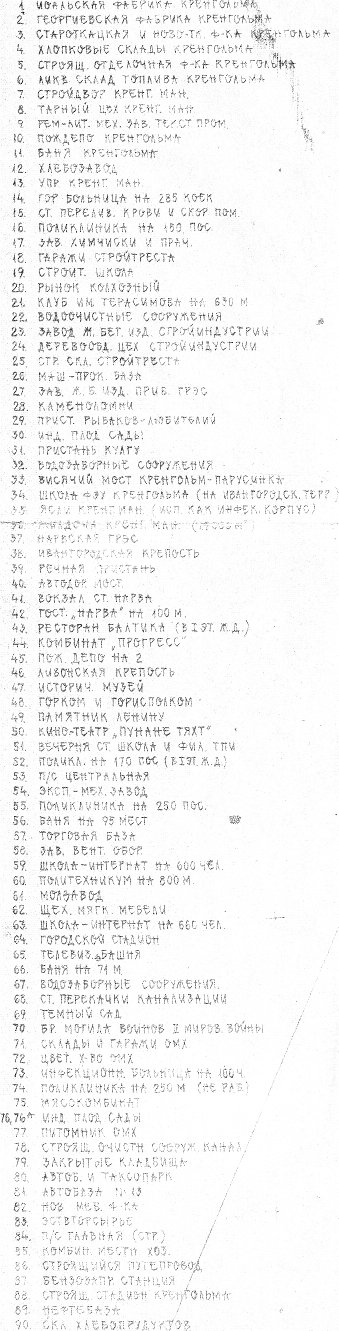 1. ИОАЛЬСКАЯ ФАБРИКА КРЕНГОЛЬМА
2. ГЕОРГИЕВСКАЯ ФАБРИКА КРЕНГОЛЬМА
3. СТАРОТКАЦКАЯ И НОВО-ТК. Ф-КА КРЕНГОЛЬМА
4. ХЛОПКОВЫЕ СКЛАДЫ КРЕНГОЛЬМА
5. СТРОЯЩ. ОТДЕЛОЧНАЯ Ф-КА КРЕНГОЛЬМА
6. ЛИКВ. СКЛАД ТОПЛИВА КРЕНГОЛЬМА
7. СТРОЙДВОР КРЕНГ. МАН.
8. ТАРНЫЙ ЦЕХ КРЕНГ. МАН
9. РЕМ-ЛИТ. МЕХ. ЗАВ. ТЕКСТ ПРОМ.
10. ПОЖДЕПО КРЕНГОЛЬМА
11. БАНЯ КРЕНГОЛЬМА
12. ХЛЕБОЗАВОД
13. УПР КРЕНГ МАН.
14. ГОР БОЛЬНИЦА НА 285 КОЕК
15. СТ. ПЕРЕЛИВ. КРОВИ И СКОР ПОМ.
16. ПОЛИКЛИНИКА НА 150 ПОС
17. ЗАВ ХИМЧИСКИ И ПРАЧ.
18. ГАРАЖИ СТРОЙТРЕСТА
19. СТРОИТ. ШКОЛА
20. РЫНОК КОЛХОЗНЫЙ
21. КЛУБ ИМ. ГЕРАСИМОВА НА 630 М
22. ВОДООЧИСТНЫЕ СООРУЖЕНИЯ
23. ЗАВОД Ж. БЕТ. ИЗД. СТРОЙИНДУСТРИИ
24. ДЕРЕВООБД. ЦЕХ СТРОЙИНДУСТРИИ
25. СТР. СКЛ. СТРОЙТРЕСТА
26. МАШ-ПРОК. БАЗА
27. ЗАВ. Ж. Б. ИЗД. ПРИБ. ГРЭС
28. КАМЕНОЛОМНИ
29. ПРИСТ. РЫБАКОВ-ЛЮБИТЕЛЕЙ
30. ИНД. ПЛОД САДЫ
31. ПРИСТАНЬ КУЛГУ
32. ВОДОЗАБОРНЫЕ СООРУЖЕНИЯ
33. ВИСЯЧИЙ МОСТ КРЕНГОЛЬМ-ПАРУСИНКА
34. ШКОЛА ФЗУ КРЕНГОЛЬМА (НА ИВАНГОРОДСК. ТЕРР.)
35. ЯСЛИ КРЕНГ МАН (ИСП КАК ИНФЕК. КОРПУС)
36. КРЕНГ МАН.
37. НАРВСКАЯ ГРЭС
38. ИВАНГОРОДСКАЯ КРЕПОСТЬ
39. РЕЧНАЯ ПРИСТАНЬ
40. АВТОДОР МОСТ
41. ВОКЗАЛ СТ. НАРВА
42. ГОСТ. „НАРВА" НА 100 М.
43. РЕСТОРАН БАЛТИКА (В I ЭТ. Ж.Д.)
44. КОМБИНАТ „ПРОГРЕСС"
45. ПОЖ. ДЕПО НА 2
46. ЛИВОНСКАЯ КРЕПОСТЬ
47. ИСТОРИЧ. МУЗЕЙ
48. ГОРКОМ И ГОРИСПОЛКОМ
49. ПАМЯТНИК ЛЕНИНУ
50. КИНО-ТЕАТР „ПУНАНЕ ТЯХТ"
51. ВЕЧЕРНЯ СТ ШКОЛА И ФИЛ. ТПИ
52. ПОЛИКЛ. НА 170 ПОС (В I ЭТ. Ж.Д)
53. П/С ЦЕНТРАЛЬНАЯ
54. ЭКСП-МЕХ. ЗАВОД
55. ПОЛИКЛИНИКА НА 250 ПОС.
56. БАНЯ НА 95 МЕСТ
57. ТОРГОВАЯ БАЗА
58. ЗАВ. ВЕНТ. ОБОР
59. ШКОЛА-ИНТЕРНАТ НА 600 ЧЕЛ.
60. ПОЛИТЕХНИКУМ НА 800 М.
61. МОЛЗАВОД
62. ЦЕХ. МЯГК. МЕБЕЛИ
63. ШКОЛА-ИНТЕРНАТ НА 660 ЧЕЛ.
64. ГОРОДСКОЙ СТАДИОН
65. ТЕЛЕВИЗ. БАШНЯ
66. БАНЯ НА 71 М.
67. ВОДОЗАБОРНЫЕ СООРУЖЕНИЯ.
68. СТ. ПЕРЕКАЧКИ КАНАЛИЗАЦИИ
69. ТЕМНЫЙ САД
70. БР. МОГИЛА ВОИНОВ II МИРОВ. ВОЙНЫ
71. СКЛАДЫ И ГАРАЖИ ОМХ
72. ЦВЕТ. Х-ВО ОМХ
73. ИНФЕКЦИОНН. БОЛЬНИЦА НА 100 Ч.
74. ПОЛИКЛИНИКА НА 250 М (НЕ РАБ)
75. МЯСОКОМБИНАТ
76, 76а ИНД. ПЛОД САДЫ
77. ПИТОМНИК ОМХ
78. СТРОЯЩ. ОЧИСТН СООРУЖ КАНАЛ
79. ЗАКРЫТЫЕ КЛАДБИЩА
80. АВТОБ. И ТАКСОПАРК
81. АВТОБАЗА № 13
82. НОВ МЕБ. Ф-КА
83. ЭСТВТОРСЫРЬЕ
84. П/С ГЛАВНАЯ (СТР)
85. КОМБИН. МЕСТН ХОЗ.
86. СТРОЯЩИЙСЯ ПУТЕПРОВОД
87. БЕНЗОЗАПР СТАНЦИЯ
88. СТРОЯЩ. СТАДИОН КРЕНГОЛЬМА
89. НЕФТЕБАЗА
90. СКЛ ХЛЕБОПРОДУКТОВ